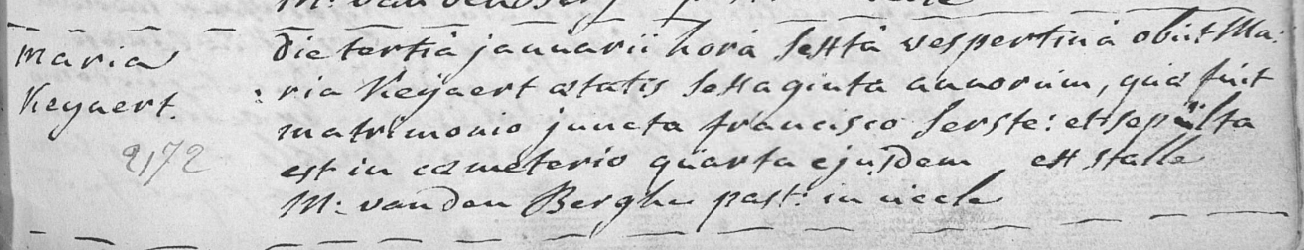 Maria
Keÿaert.
2172
die tertiâ januarii horâ sextâ vespertinâ obiit Ma:
:ria Keÿaert ætatis sexaginta annorum, quæ fuit
matrimonio juncta francisco Serste: et sepulta
est in cæmeterio quarta ejusdem ex stalle
M: vanden Berghe past: in uccle